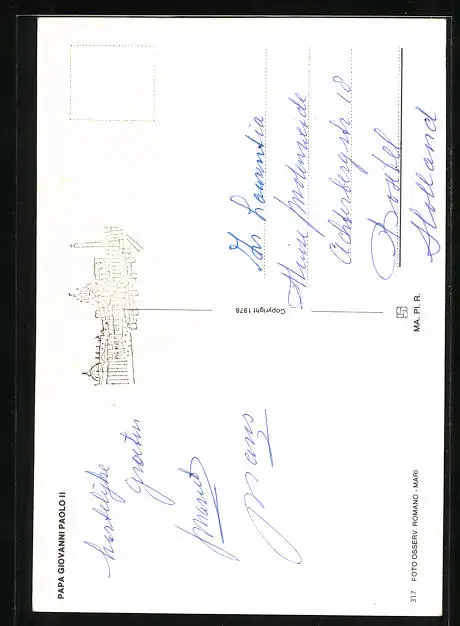 PAPA GIOVANNI PAOLO II
hartelijke
Groeten
Marietz
Mans
Copyright 1978
Zr Laurentia
Huize
Achterbergstr 18
Boxtel
Holland
317 FOTO OSSERV. ROMANO - MARI
MA. PI. R.